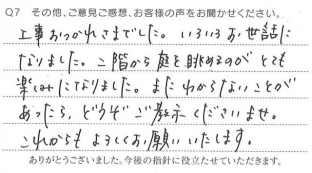 Q7 その他、ご意見ご感想、お客様の声をお聞かせください。
工事おつかれさまでした。いろいろお世話に
なりました。二階から庭を眺めるのがとても
楽しみになりました。またわからないことが
あったら、どうぞご教示くださいませ。
これからもよろしくお願いいたします。
ありがとうございました。今後の指針に役立たせていただきます。